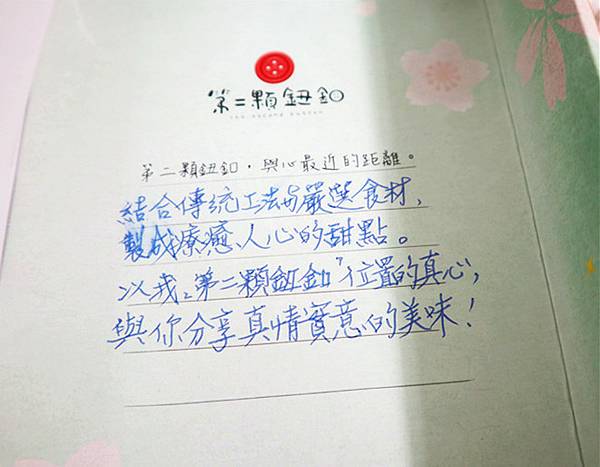 第二顆鈕釦
THE SECOND BUTTON
第二顆鈕釦，與心最近的距離。
結合傳統工法与嚴選食材，
製成療癒人心的甜點。
以我「第二顆鈕釦」位置的真心，
與你分享真情實意的美味！